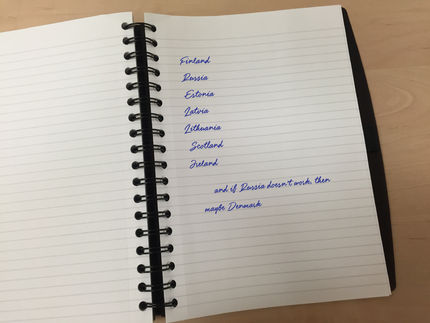 Finland
Russia
Estonia
Latvia
Lithuania
Scotland
Ireland
and if Russia doesn't work, then
maybe Denmark